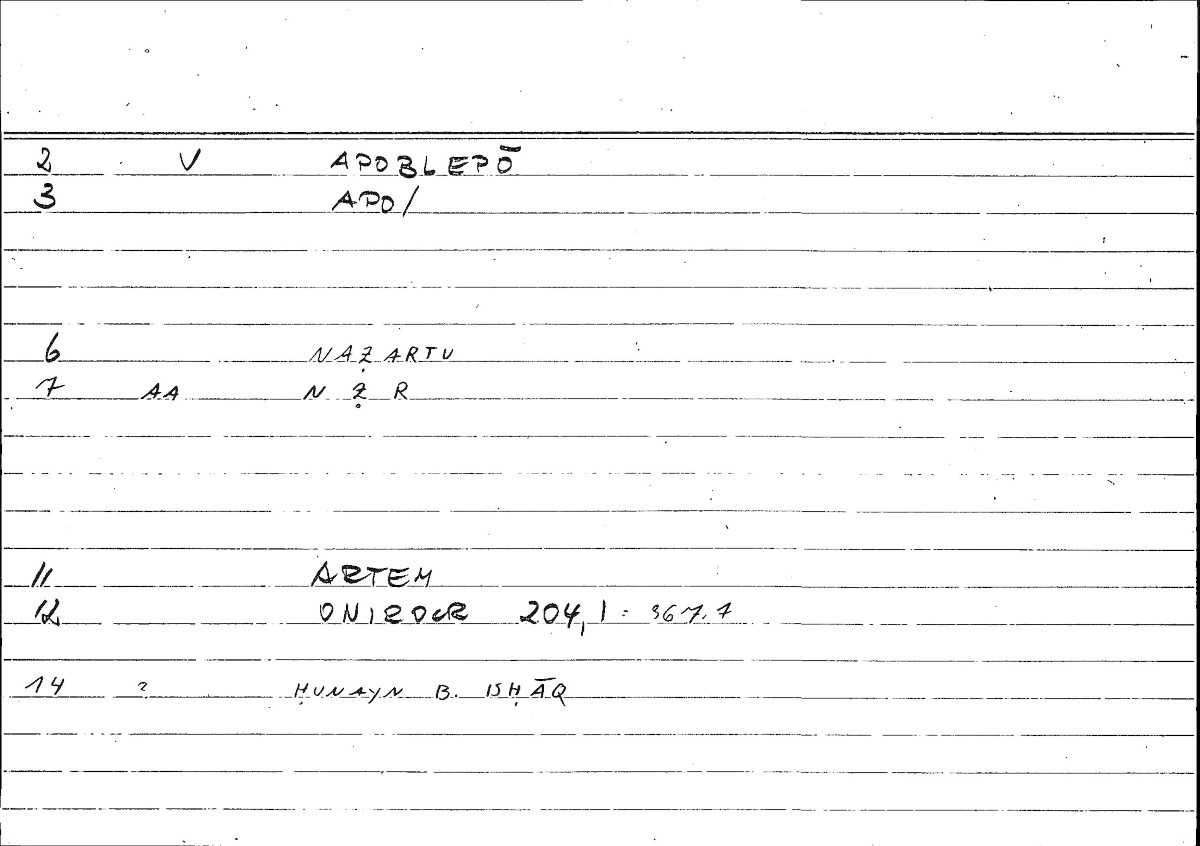 2 V APOBLEPŌ
3 APO/
6 NAẒARTU
7 AA N Ẓ R
11 ARTEM
12 ONIROCR 204,1 : 367.7
14 ? ḤUNAYN B. ISḤĀQ